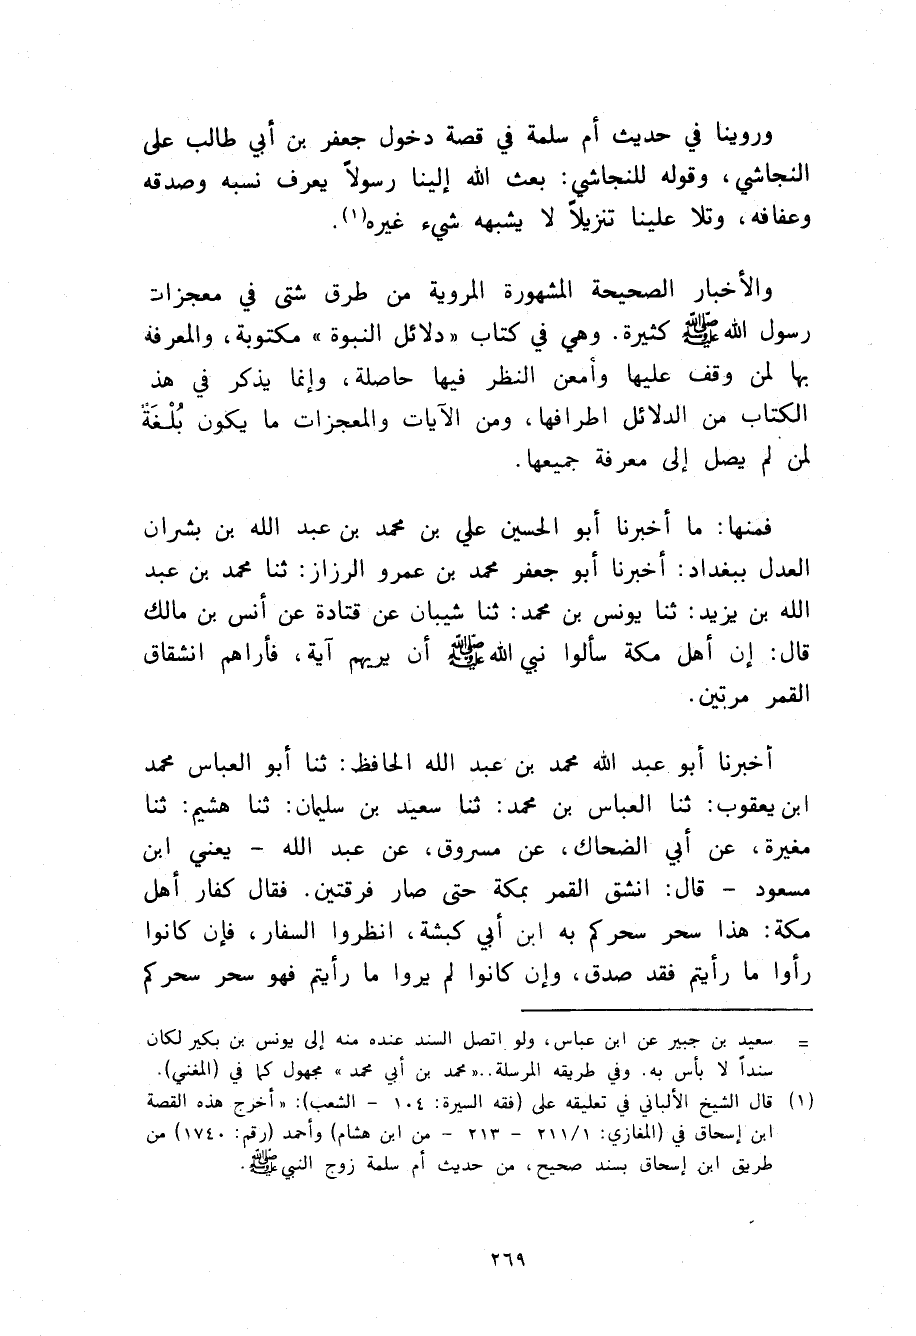 وروينا في حديث أم سلمة في قصة دخول جعفر بن أبي طالب على
النجاشي، وقوله للنجاشي: بعث الله إلينا رسولاً يعرف نسبه وصدقه
وعفافه، وتلا علينا تنزيلاً لا يشبهه شيء غيره(١).
والأخبار الصحيحة المشهورة المروية من طرق شتى في معجزات
رسول الله ﷺ كثيرة. وهي في كتاب «دلائل النبوة» مكتوبة، والمعرفة
بها لمن وقف عليها وأمعن النظر فيها حاصلة، وإنما يذكر في هذ
الكتاب من الدلائل اطرافها، ومن الآيات والمعجزات ما يكون بُلْغَةً
لمن لم يصل إلى معرفة جميعها.
فمنها: ما أخبرنا أبو الحسين علي بن محمد بن عبد الله بن بشران
العدل ببغداد: أخبرنا أبو جعفر محمد بن عمرو الرزاز: ثنا محمد بن عبد
الله بن يزيد: ثنا يونس بن محمد: ثنا شيبان عن قتادة عن أنس بن مالك
قال: إن أهل مكة سألوا نبي الله ﷺ أن يريهم آية، فأراهم انشقاق
القمر مرتين.
أخبرنا أبو عبد الله محمد بن عبد الله الحافظ: ثنا أبو العباس محمد
ابن يعقوب: ثنا العباس بن محمد: ثنا سعيد بن سليمان: ثنا هشيم: ثنا
مغيرة، عن أبي الضحاك، عن مسروق، عن عبد الله - يعني ابن
مسعود - قال: انشق القمر بمكة حتى صار فرقتين. فقال كفار أهل
مكة: هذا سحر سحركم به ابن أبي كبشة، انظروا السفار، فإن كانوا
رأوا ما رأيتم فقد صدق، وإن كانوا لم يروا ما رأيتم فهو سحر سحركم
= سعيد بن جبير عن ابن عباس، ولو اتصل السند عنده منه إلى يونس بن بكير لكان
سنداً لا بأس به. وفي طريقه المرسلة..«محمد بن أبي محمد» مجهول كما في (المغني).
(١) قال الشيخ الألباني في تعليقه على (فقه السيرة: ١٠٤ - الشعب): «أخرج هذه القصة
ابن إسحاق في (المغازي: ٢١١/١ - ٢١٣ - من ابن هشام) وأحمد (رقم: ١٧٤٠) من
طريق ابن إسحاق بسند صحيح، من حديث أم سلمة زوج النبي ﷺ.
٢٦٩